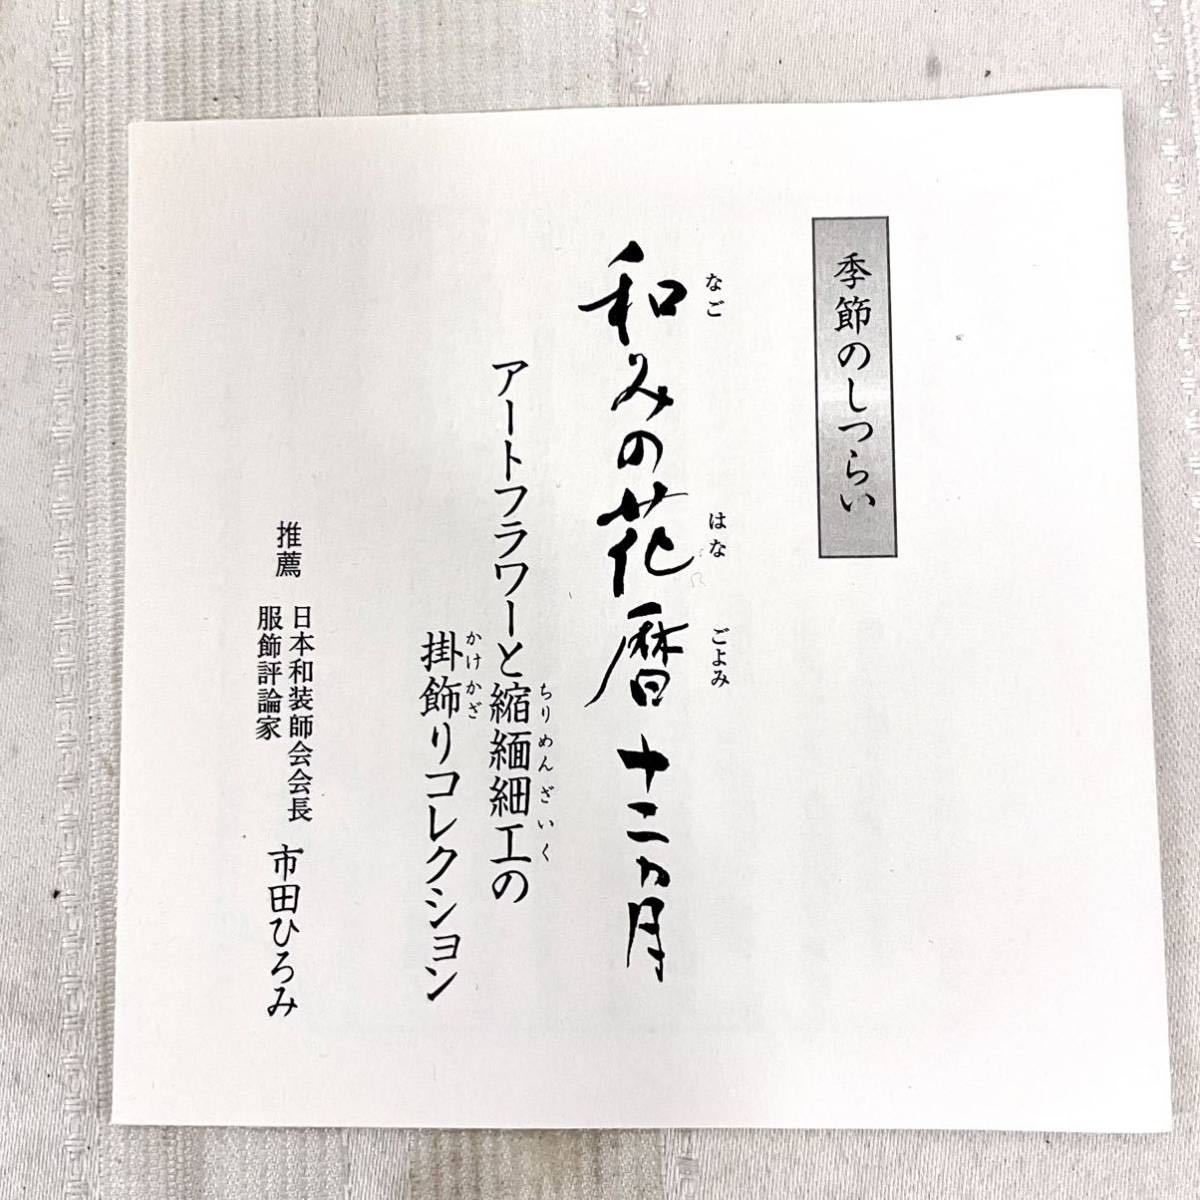 季節のしつらい
和みの花暦十二ヵ月
なご はな ごよみ
アートフラワーと縮緬細工の
ちりめんざいく
掛飾りコレクション
かけかざ
推薦 日本和装師会会長 市田ひろみ
服飾評論家